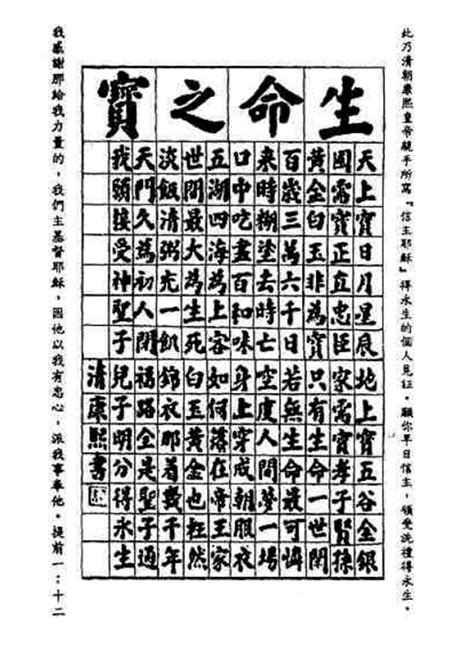 此乃清朝康熙皇帝親手所寫『信主耶穌』得永生的個人見証。願你早日信主，領受洗禮得永生。
生命之寶
天上寶日月星辰地上寶五谷金銀
國需寶正直忠臣家需寶孝子賢孫
黃金白玉非為寶只有生命一世閑
百歲三萬六千日若無生命最可憐
來時糊塗去時亡空度人間夢一場
口中吃盡百和味身上穿成朝服衣
五湖四海為上客如何落在帝王家
世間最大為生死白玉黃金也枉然
淡飯清粥充一飢錦衣那着幾千年
天門久為初人閉福路全是聖子通
我願接受神聖子兒子明分得永生
清康熙書
我感謝那給我力量的，我們主基督耶穌，因他以我有忠心，派我事奉他。提前一：十二